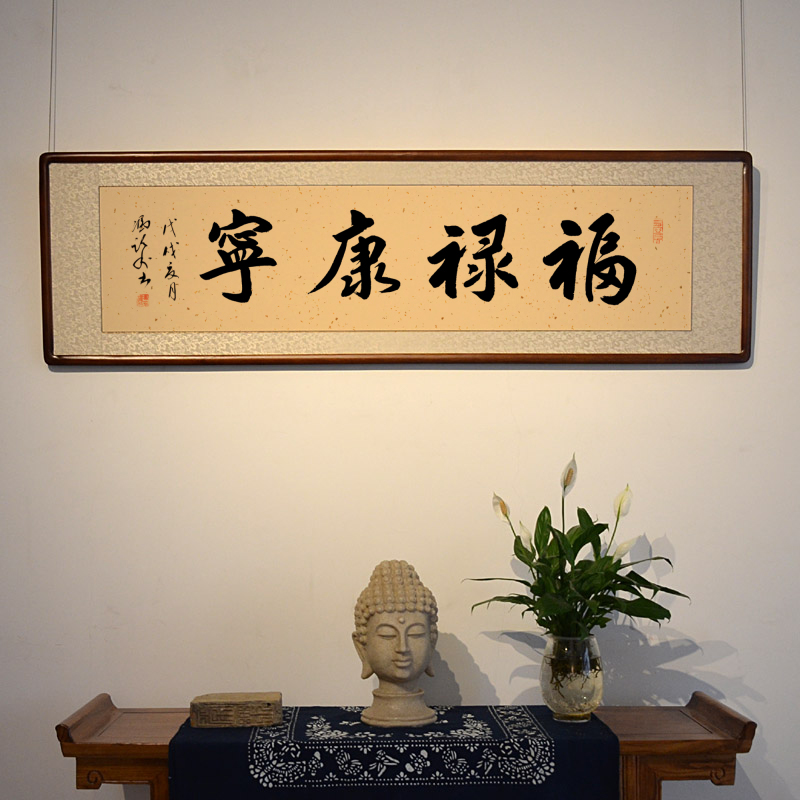 福禄康寧
戊戌夏月